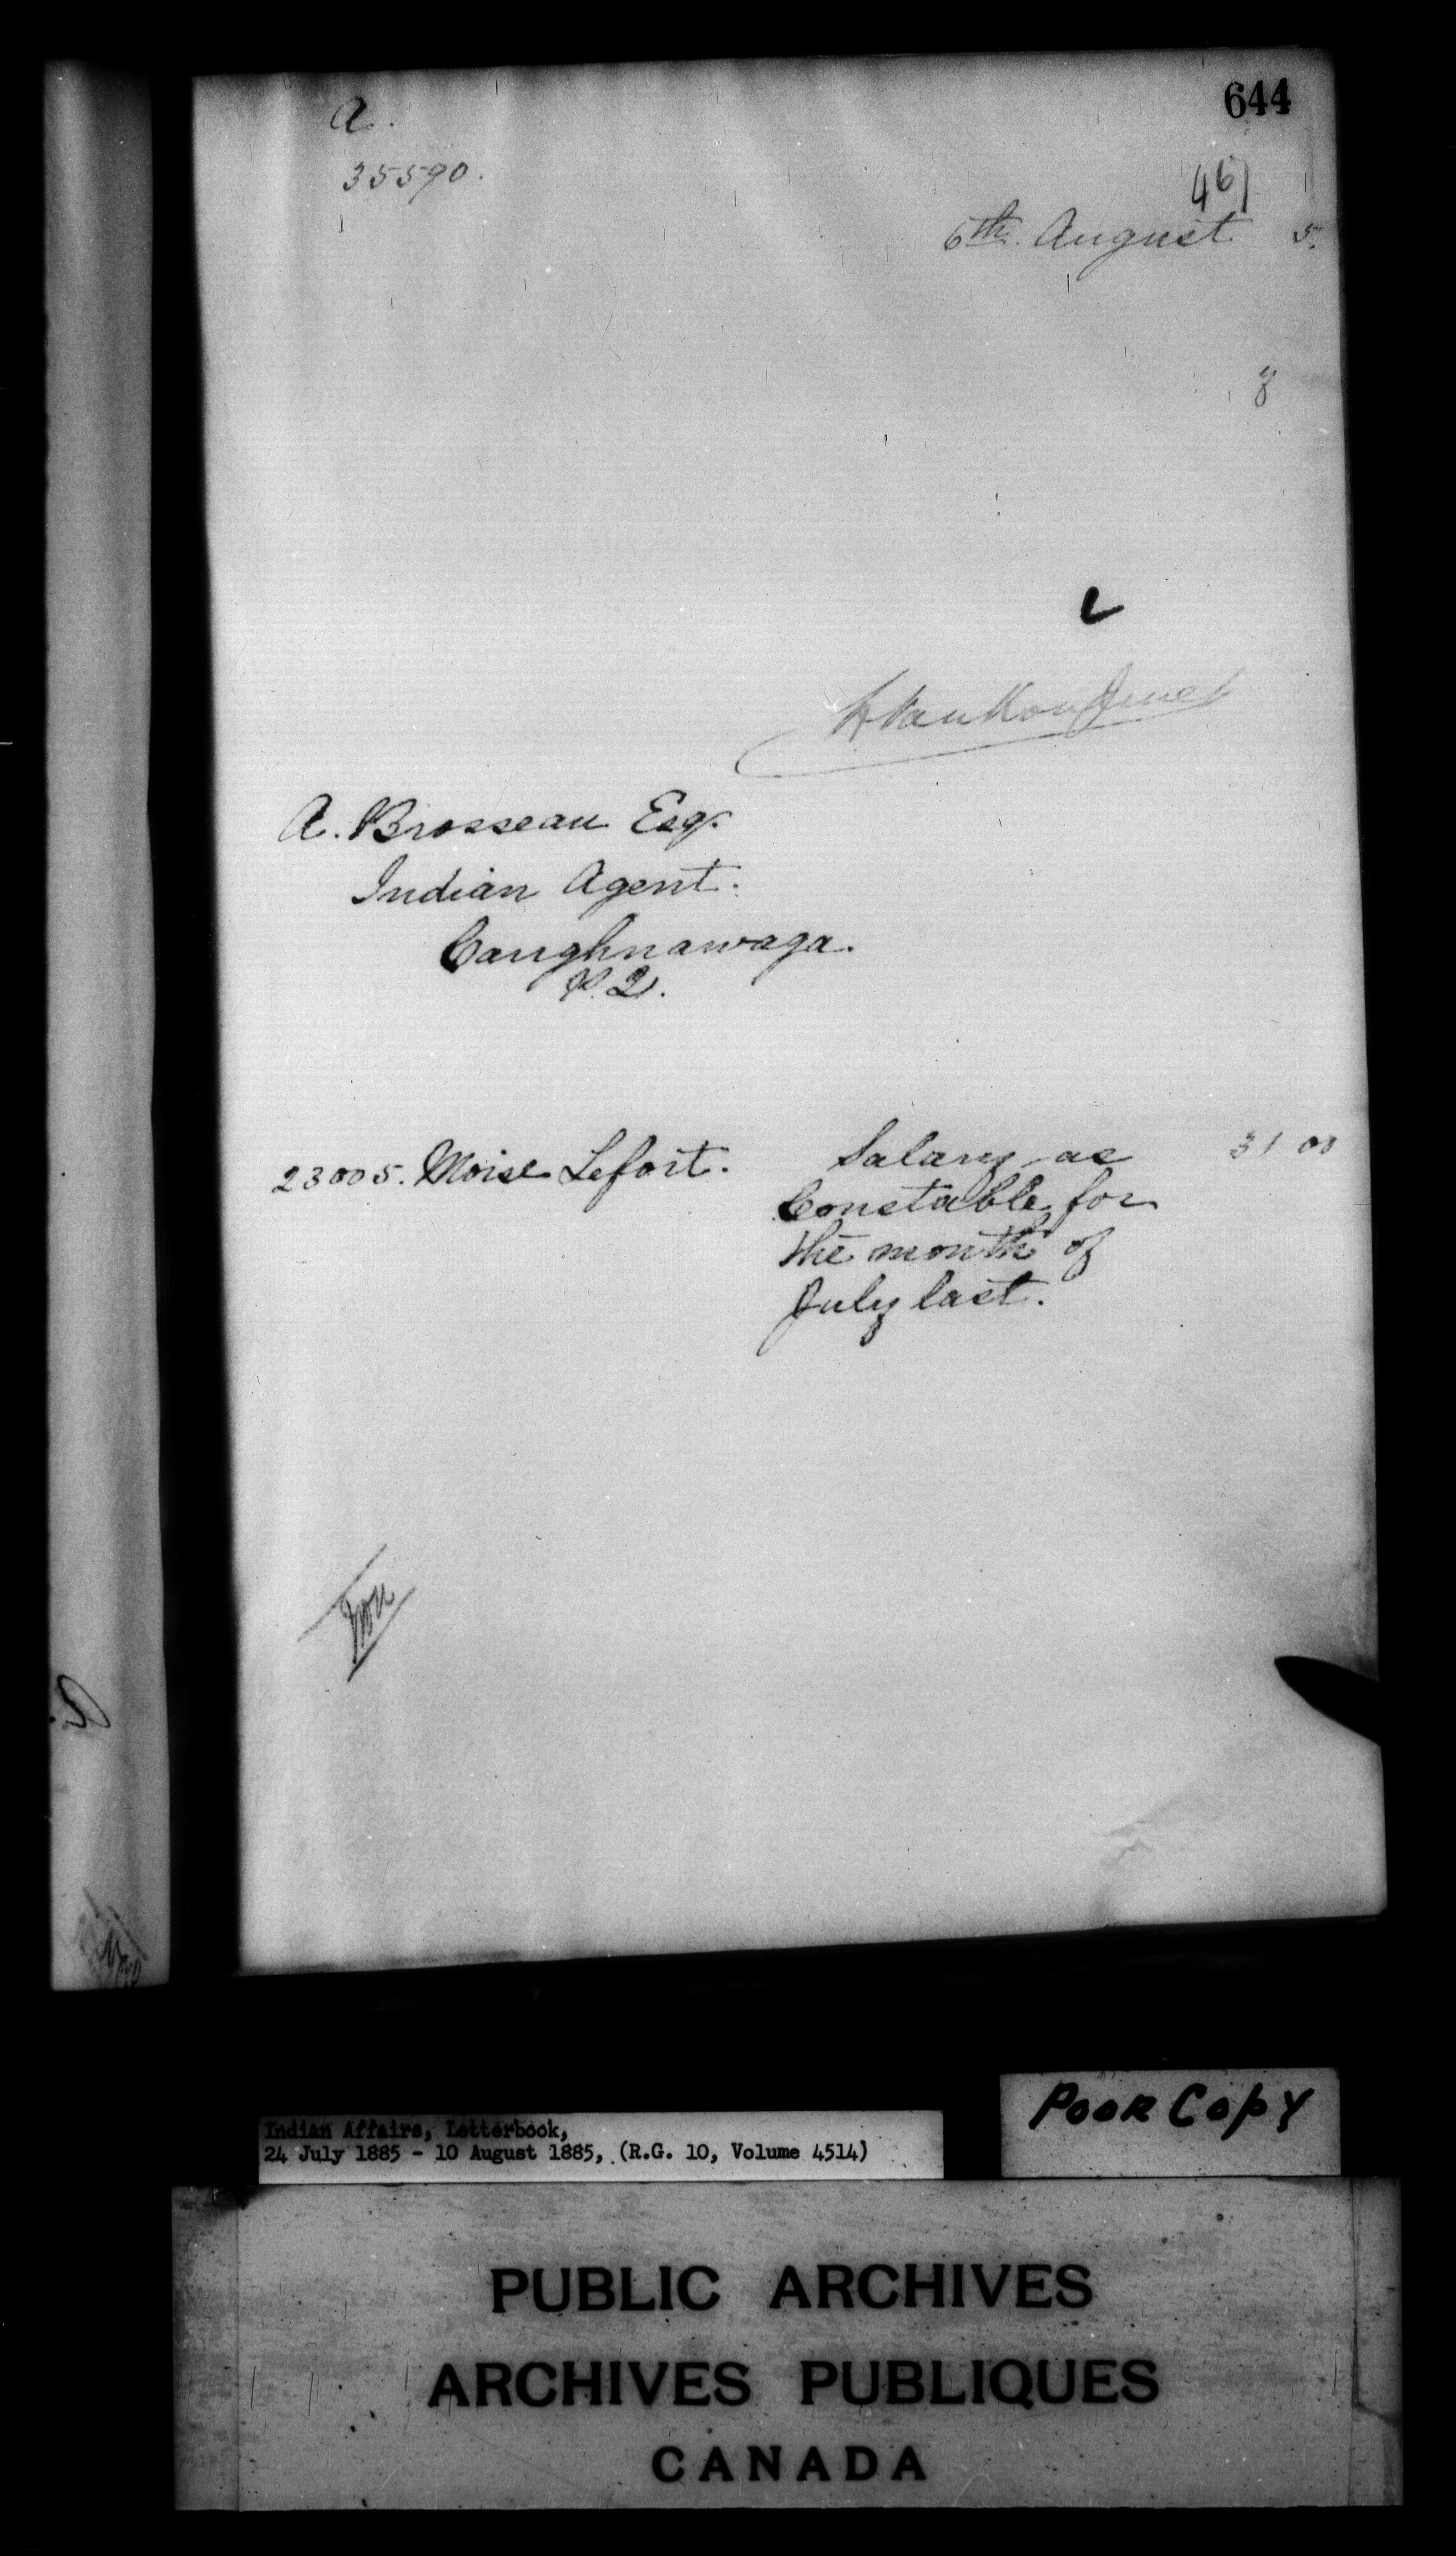 644
A.
35590.
461
6th August 5.
y
L VanKoughnet
A. Brosseau Esq.
Indian Agent.
Caughnawaga.
P.Q.
23005. Moise Lefort. Salary as 31 00
Constable for
the month of
July last.
Indian Affairs, Letterbook,
24 July 1885 - 10 August 1885, (R.G. 10, Volume 4514)
Poor Copy
PUBLIC ARCHIVES
ARCHIVES PUBLIQUES
CANADA